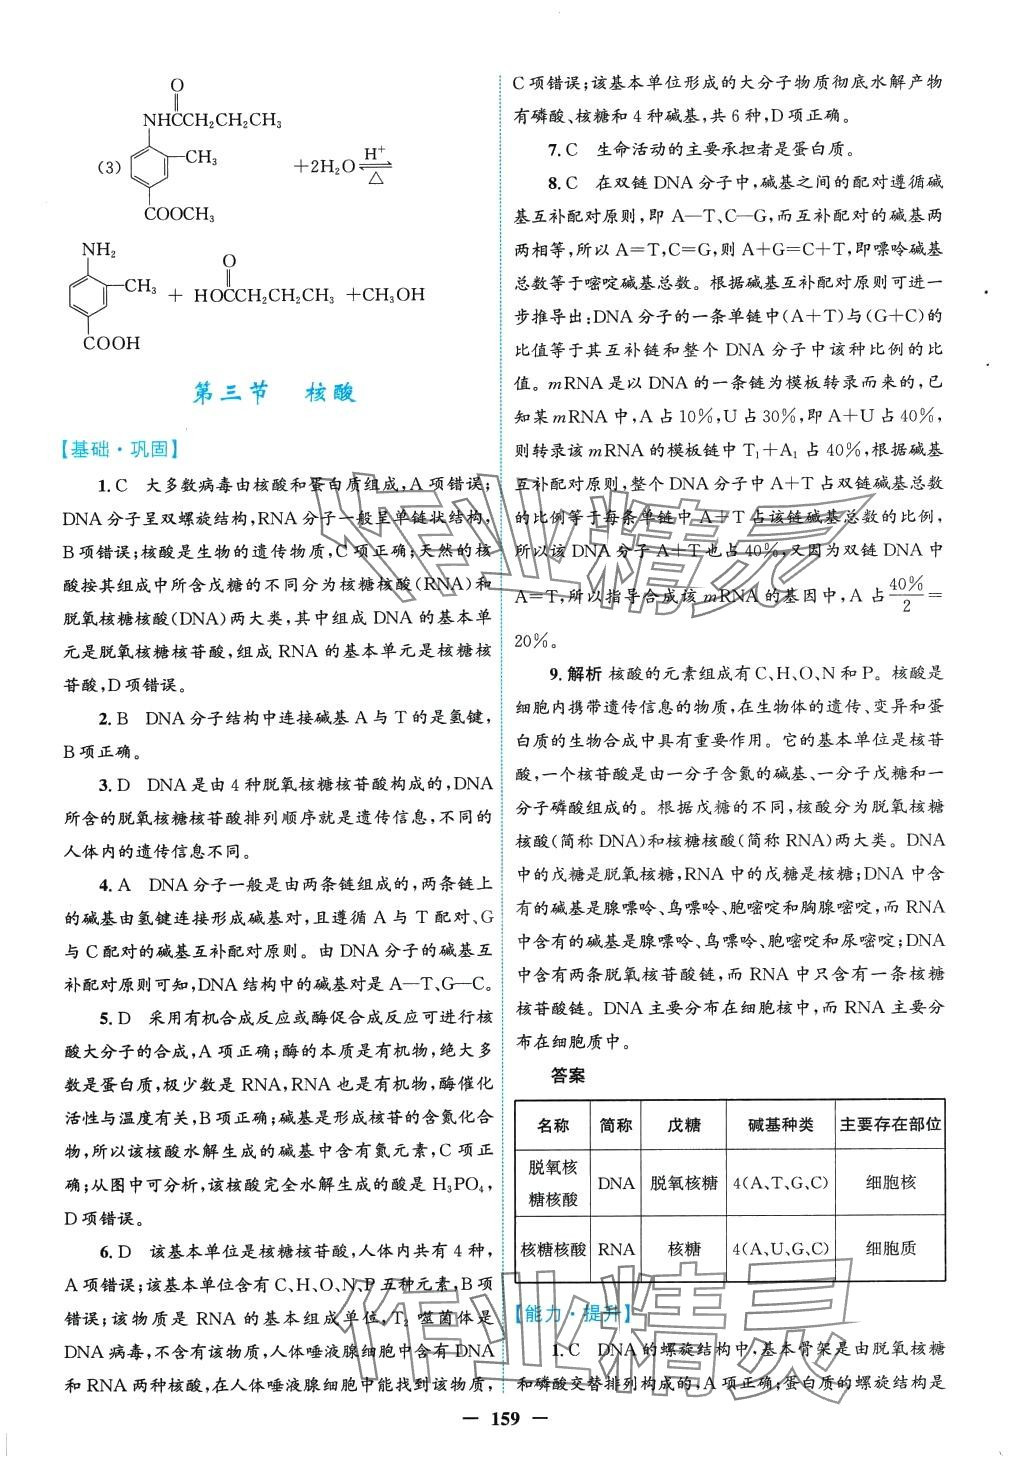 O
NHCCH₂CH₂CH₃
(3)
CH₃
+2H₂O
H⁺
△
COOCH₃
NH₂
O
CH₃
+ HOCCH₂CH₂CH₃ +CH₃OH
COOH
第三节 核酸
【基础·巩固】
1.C 大多数病毒由核酸和蛋白质组成,A项错误;
DNA分子呈双螺旋结构,RNA分子一般呈单链状结构,
B项错误;核酸是生物的遗传物质,C项正确;天然的核
酸按其组成中所含戊糖的不同分为核糖核酸(RNA)和
脱氧核糖核酸(DNA)两大类,其中组成DNA的基本单
元是脱氧核糖核苷酸,组成RNA的基本单元是核糖核
苷酸,D项错误。
2.B DNA分子结构中连接碱基A与T的是氢键,
B项正确。
3.D DNA是由4种脱氧核糖核苷酸构成的,DNA
所含的脱氧核糖核苷酸排列顺序就是遗传信息,不同的
人体内的遗传信息不同。
4.A DNA分子一般是由两条链组成的,两条链上
的碱基由氢键连接形成碱基对,且遵循A与T配对、G
与C配对的碱基互补配对原则。由DNA分子的碱基互
补配对原则可知,DNA结构中的碱基对是A—T、G—C。
5.D 采用有机合成反应或酶促合成反应可进行核
酸大分子的合成,A项正确;酶的本质是有机物,绝大多
数是蛋白质,极少数是RNA,RNA也是有机物,酶催化
活性与温度有关,B项正确;碱基是形成核苷的含氮化合
物,所以该核酸水解生成的碱基中含有氮元素,C项正
确;从图中可分析,该核酸完全水解生成的酸是H₃PO₄,
D项错误。
6.D 该基本单位是核糖核苷酸,人体内共有4种,
A项错误;该基本单位含有C、H、O、N、P五种元素,B项
错误;该物质是RNA的基本组成单位,T₂噬菌体是
DNA病毒,不含有该物质,人体唾液腺细胞中含有DNA
和RNA两种核酸,在人体唾液腺细胞中能找到该物质,
C项错误;该基本单位形成的大分子物质彻底水解产物
有磷酸、核糖和4种碱基,共6种,D项正确。
7.C 生命活动的主要承担者是蛋白质。
8.C 在双链DNA分子中,碱基之间的配对遵循碱
基互补配对原则,即A—T、C—G,而互补配对的碱基两
两相等,所以A=T,C=G,则A+G=C+T,即嘌呤碱基
总数等于嘧啶碱基总数。根据碱基互补配对原则可进一
步推导出:DNA分子的一条单链中(A+T)与(G+C)的
比值等于其互补链和整个DNA分子中该种比例的比
值。mRNA是以DNA的一条链为模板转录而来的,已
知某mRNA中,A占10%,U占30%,即A+U占40%,
则转录该mRNA的模板链中T₁+A₁占40%,根据碱基
互补配对原则,整个DNA分子中A+T占双链碱基总数
的比例等于每条单链中A+T占该链碱基总数的比例,
所以该DNA分子A+T也占40%,又因为双链DNA中
A=T,所以指导合成该mRNA的基因中,A占40%/2=
20%。
9.解析 核酸的元素组成有C、H、O、N和P。核酸是
细胞内携带遗传信息的物质,在生物体的遗传、变异和蛋
白质的生物合成中具有重要作用。它的基本单位是核苷
酸,一个核苷酸是由一分子含氮的碱基、一分子戊糖和一
分子磷酸组成的。根据戊糖的不同,核酸分为脱氧核糖
核酸(简称DNA)和核糖核酸(简称RNA)两大类。DNA
中的戊糖是脱氧核糖,RNA中的戊糖是核糖;DNA中含
有的碱基是腺嘌呤、鸟嘌呤、胞嘧啶和胸腺嘧啶,而RNA
中含有的碱基是腺嘌呤、鸟嘌呤、胞嘧啶和尿嘧啶;DNA
中含有两条脱氧核苷酸链,而RNA中只含有一条核糖
核苷酸链。DNA主要分布在细胞核中,而RNA主要分
布在细胞质中。
答案
名称 简称 戊糖 碱基种类 主要存在部位
脱氧核
糖核酸 DNA 脱氧核糖 4(A、T、G、C) 细胞核
核糖核酸 RNA 核糖 4(A、U、G、C) 细胞质
【能力·提升】
1.C DNA的螺旋结构中,基本骨架是由脱氧核糖
和磷酸交替排列构成的,A项正确;蛋白质的螺旋结构是
— 159 —
作业精灵
作业精灵